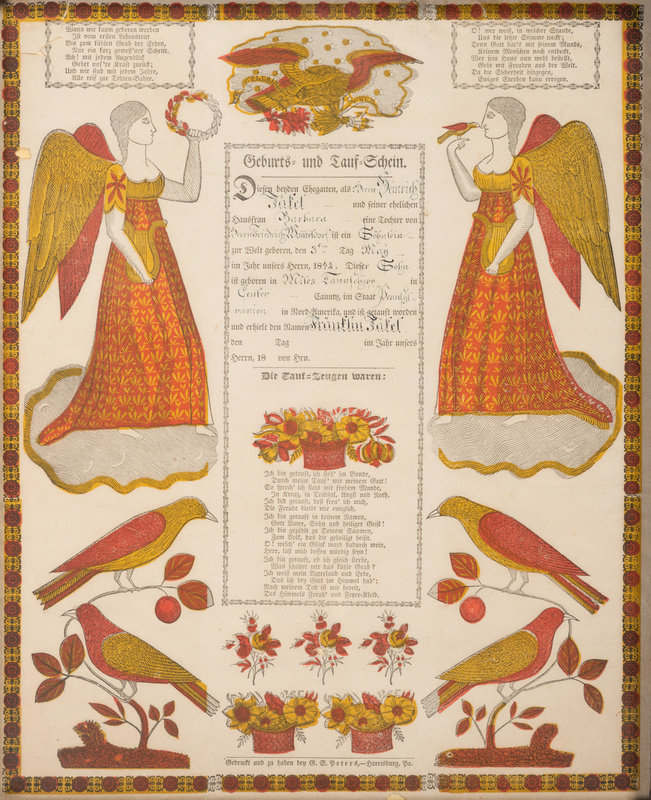 Wann wir kaum geboren werden
Ist vom ersten Lebenstritt
Bis zum kühlen Grab der Erden,
Nur ein kurz gemeß'ner Schritt.
Ach! mit jedem Augenblick
Gehet uns're Kraft zurück;
Und wir sind mit jedem Jahre,
Alle reif zur Todten-Bahre.
O! wer weiß, in welcher Stunde,
Uns die letzte Stimme weckt;
Denn Gott hat's mit seinem Munde,
Keinem Menschen noch entdeckt.
Wer sein Haus nun wohl bestellt,
Geht mit Freuden aus der Welt,
Da die Sicherheit hingegen,
Ewiges Sterben kann erregen.
Geburts- und Tauf-Schein.
Diesen beyden Ehegatten, als: Herrn Heinrich
Jäkel und seiner ehelichen
Hausfrau Barbara eine Tochter von
Herrn Friedrich ist ein Söhnlein
zur Welt geboren, den 3ten Tag May
im Jahr unsers Herrn, 1842. Dieser Sohn
ist geboren in Miles Taunschip in
Center Caunty, im Staat Pennsyl-
vanien in Nord-Amerika, und ist getauft worden
und erhielt den Namen Fränklin Jäkel
den Tag im Jahr unsers
Herrn, 18 von Hrn.
Die Tauf-Zeugen waren:
Ich bin getauft, ich steh' im Bunde,
Durch meine Tauf' mit meinem Gott!
So sprech' ich stets mit frohem Munde,
In Kreuz, in Trübsal, Angst und Noth.
Ich bin getauft, deß freu' ich mich,
Die Freude bleibt mir ewiglich.
Ich bin getauft in deinem Namen,
Gott Vater, Sohn und heiliger Geist!
Ich bin gezählt zu Deinem Saamen,
Zum Volk, das dir geheiligt heißt.
O! welch' ein Glück ward dadurch mein,
Herr, laß mich dessen würdig seyn!
Ich bin getauft, ob ich gleich sterbe,
Was schadet mir das kühle Grab?
Ich weiß mein Vaterland und Erbe,
Das ich bey Gott im Himmel hab':
Nach meinem Tod ist mir bereit,
Des Himmels Freud' und Feyer-Kleid.
Gedruckt und zu haben bey G. S. Peters,—Harrisburg, Pa.